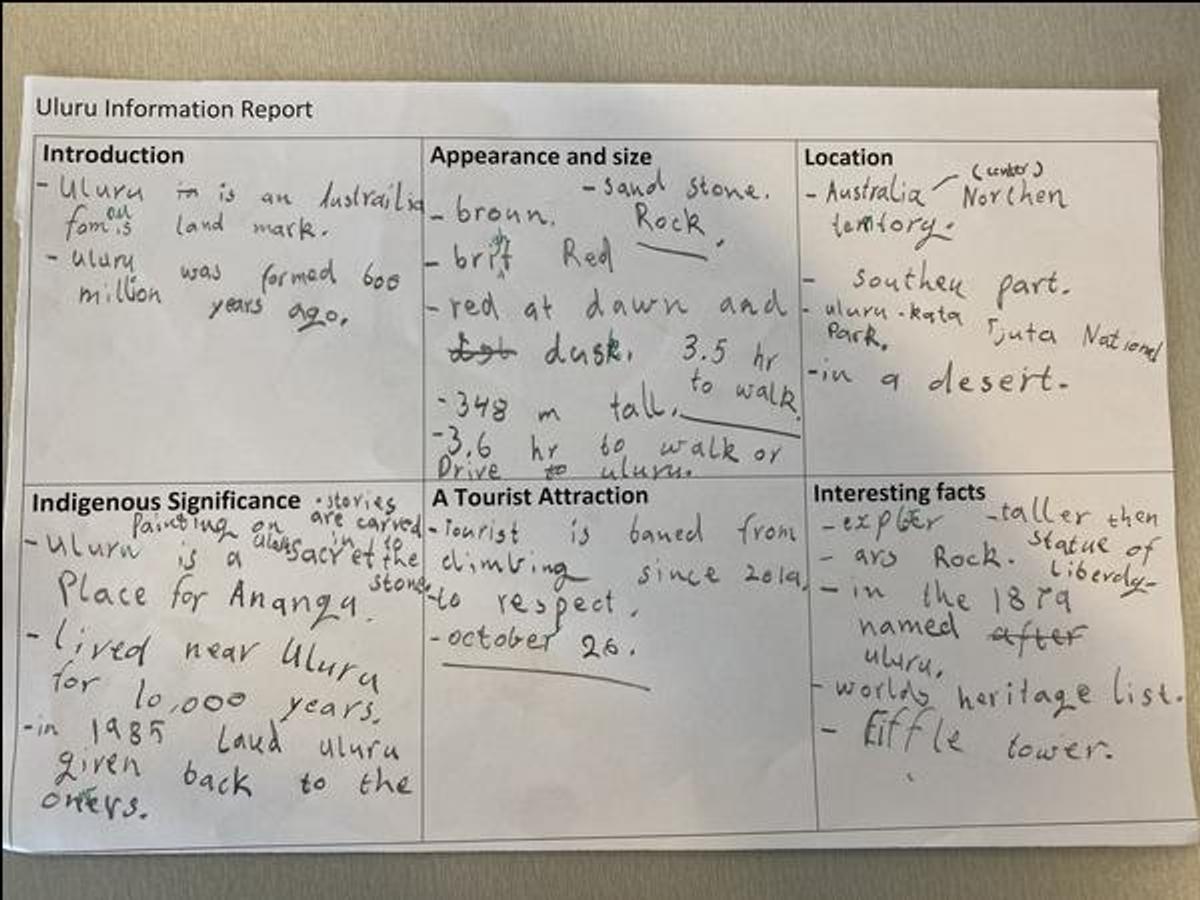 Uluru Information Report
Introduction
- Uluru is an Australia
famous land mark.
- uluru was formed 600
million years ago.
Appearance and size
- sand stone.
- broun. Rock.
- brit Red
- red at dawn and
dusk. 3.5 hr
to walk.
- 348 m tall.
- 3.6 hr to walk or
Drive to uluru.
Location
(center)
- Australia Northen
territory.
- southen part.
- uluru-kata Tjuta National
Park.
- in a desert.
Indigenous Significance
• stories
are carved
in to
the
stone.
Painting on
uluru
- Uluru is a sacret
Place for Anangu.
- lived near Uluru
for 10,000 years.
- in 1985 Land uluru
given back to the
oners.
A Tourist Attraction
- Tourist is baned from
climbing since 2019.
- to respect.
- october 26.
Interesting facts
- explor
- taller then
statue of
liberdy-
- ars Rock.
- in the 1879
named after
uluru.
- worlds heritage list.
- Eiffle tower.